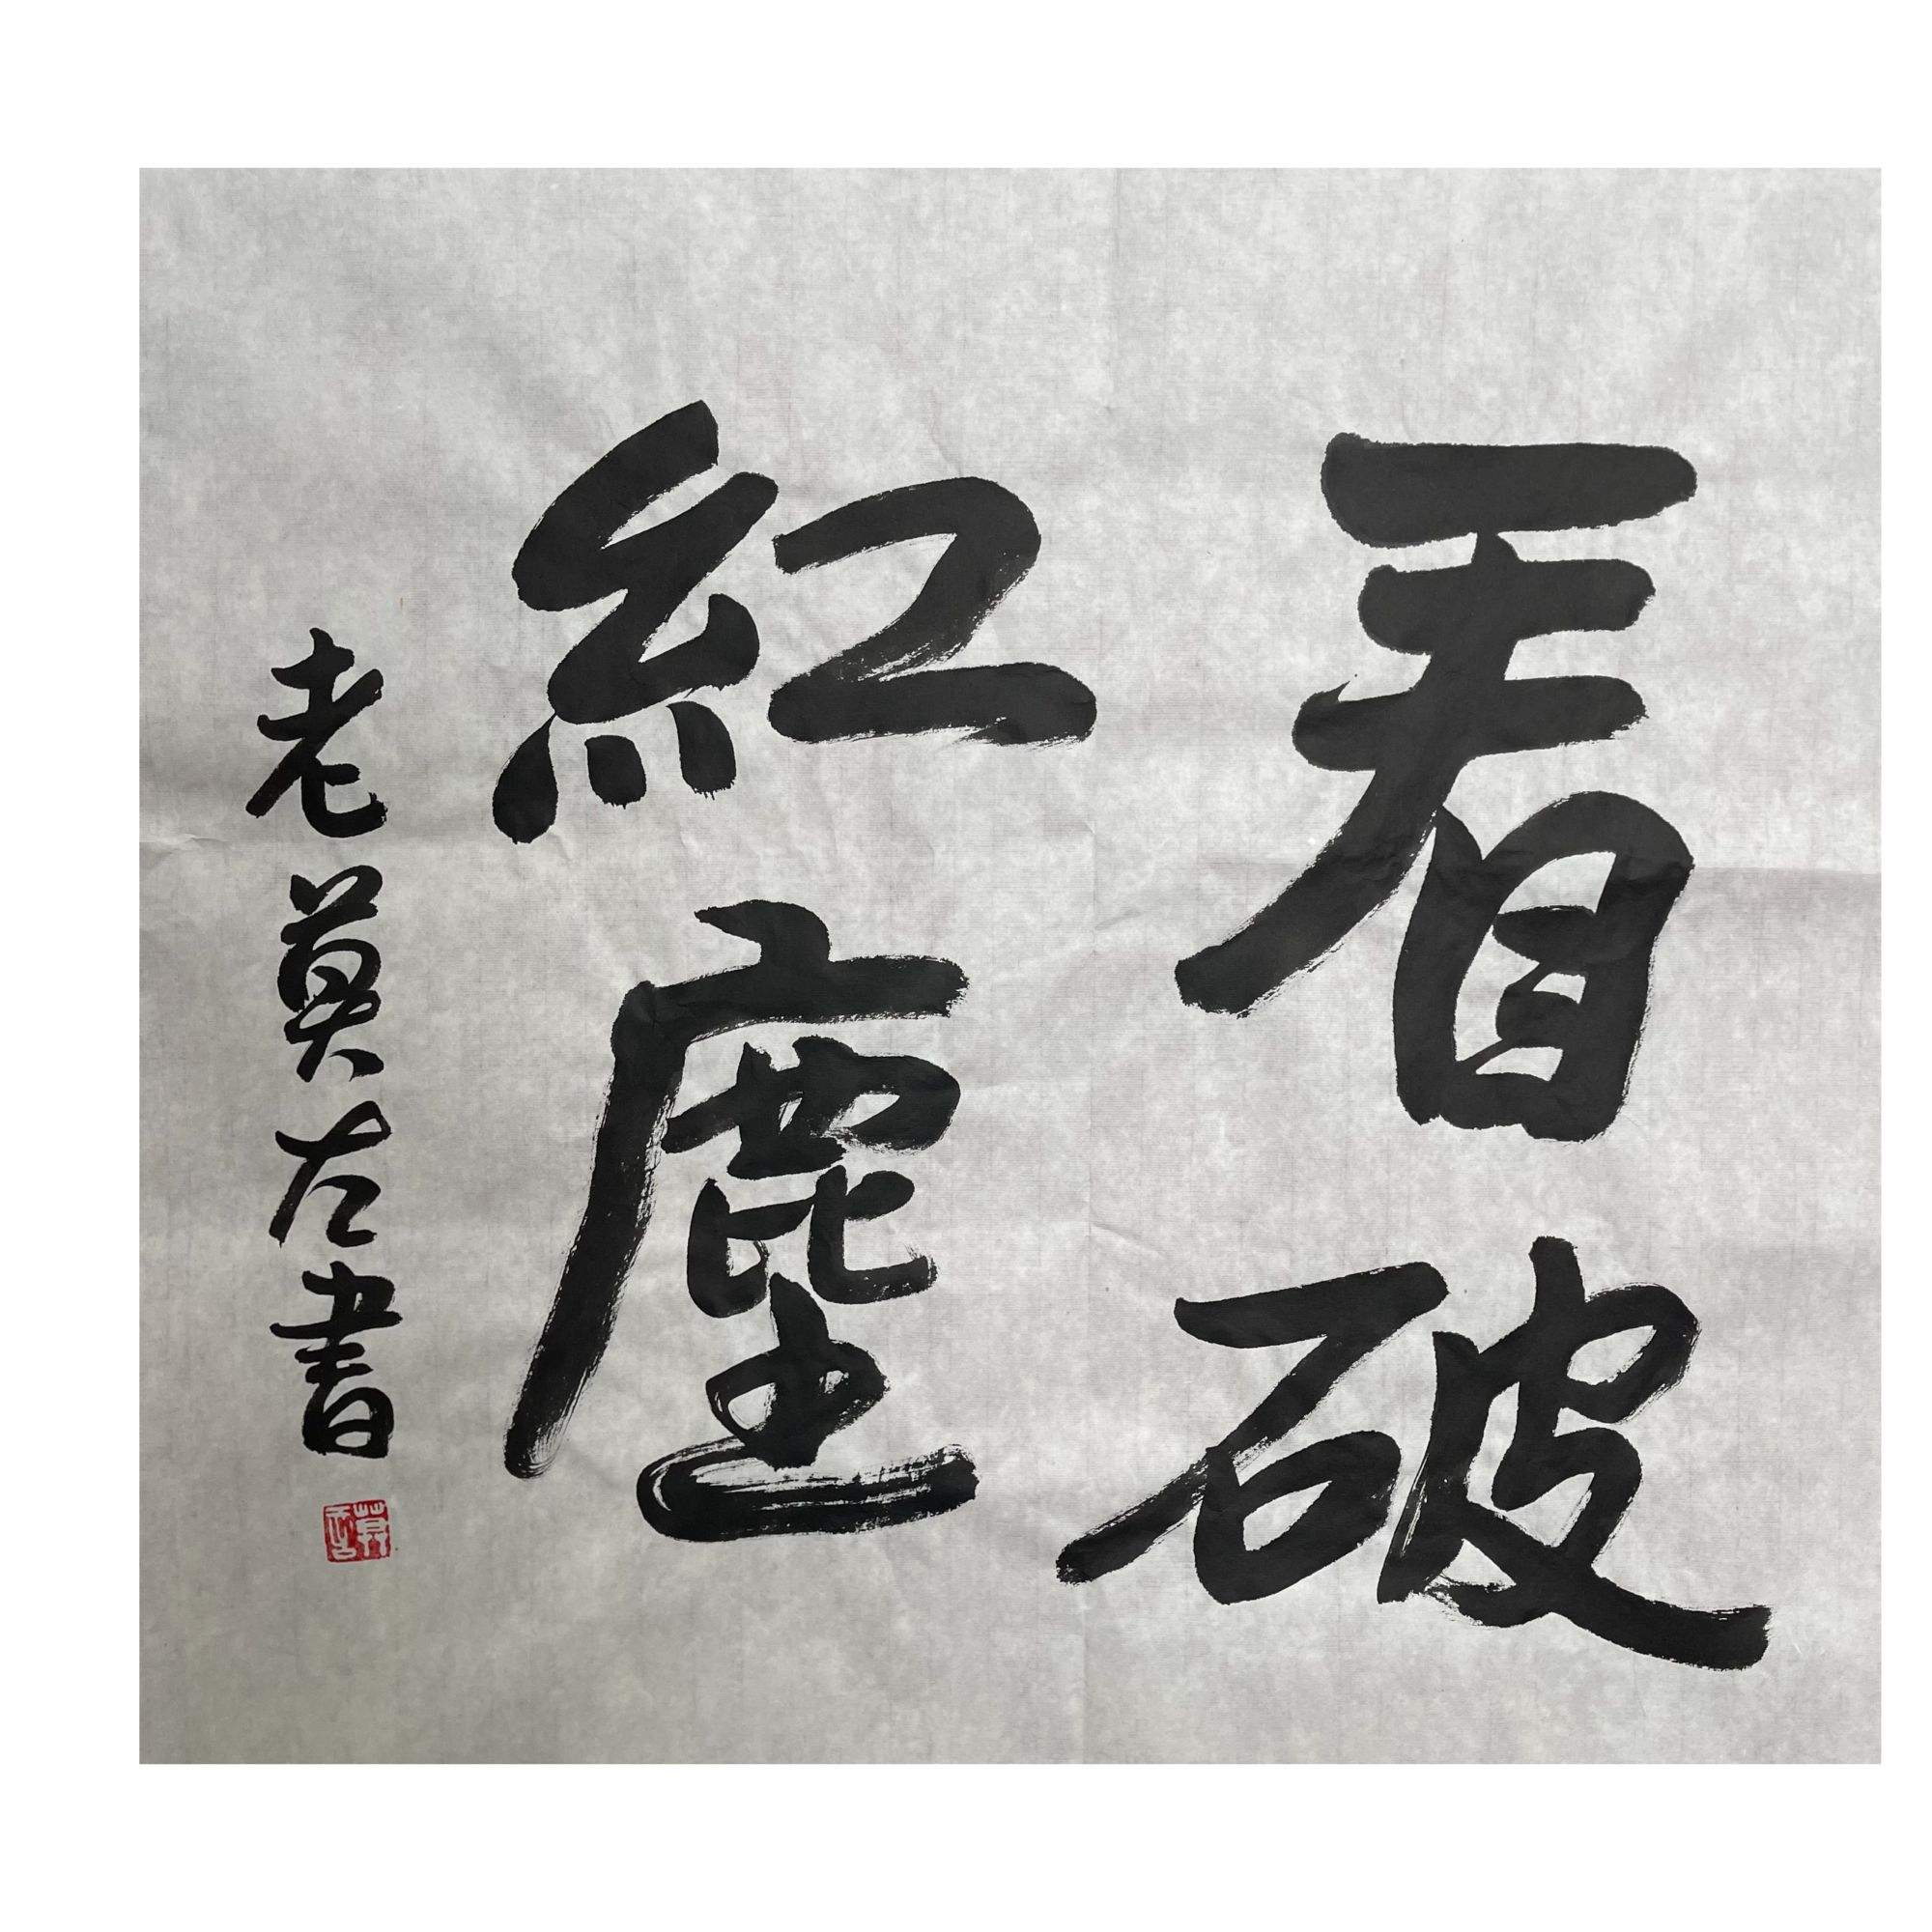 看破
紅塵
老莫左書